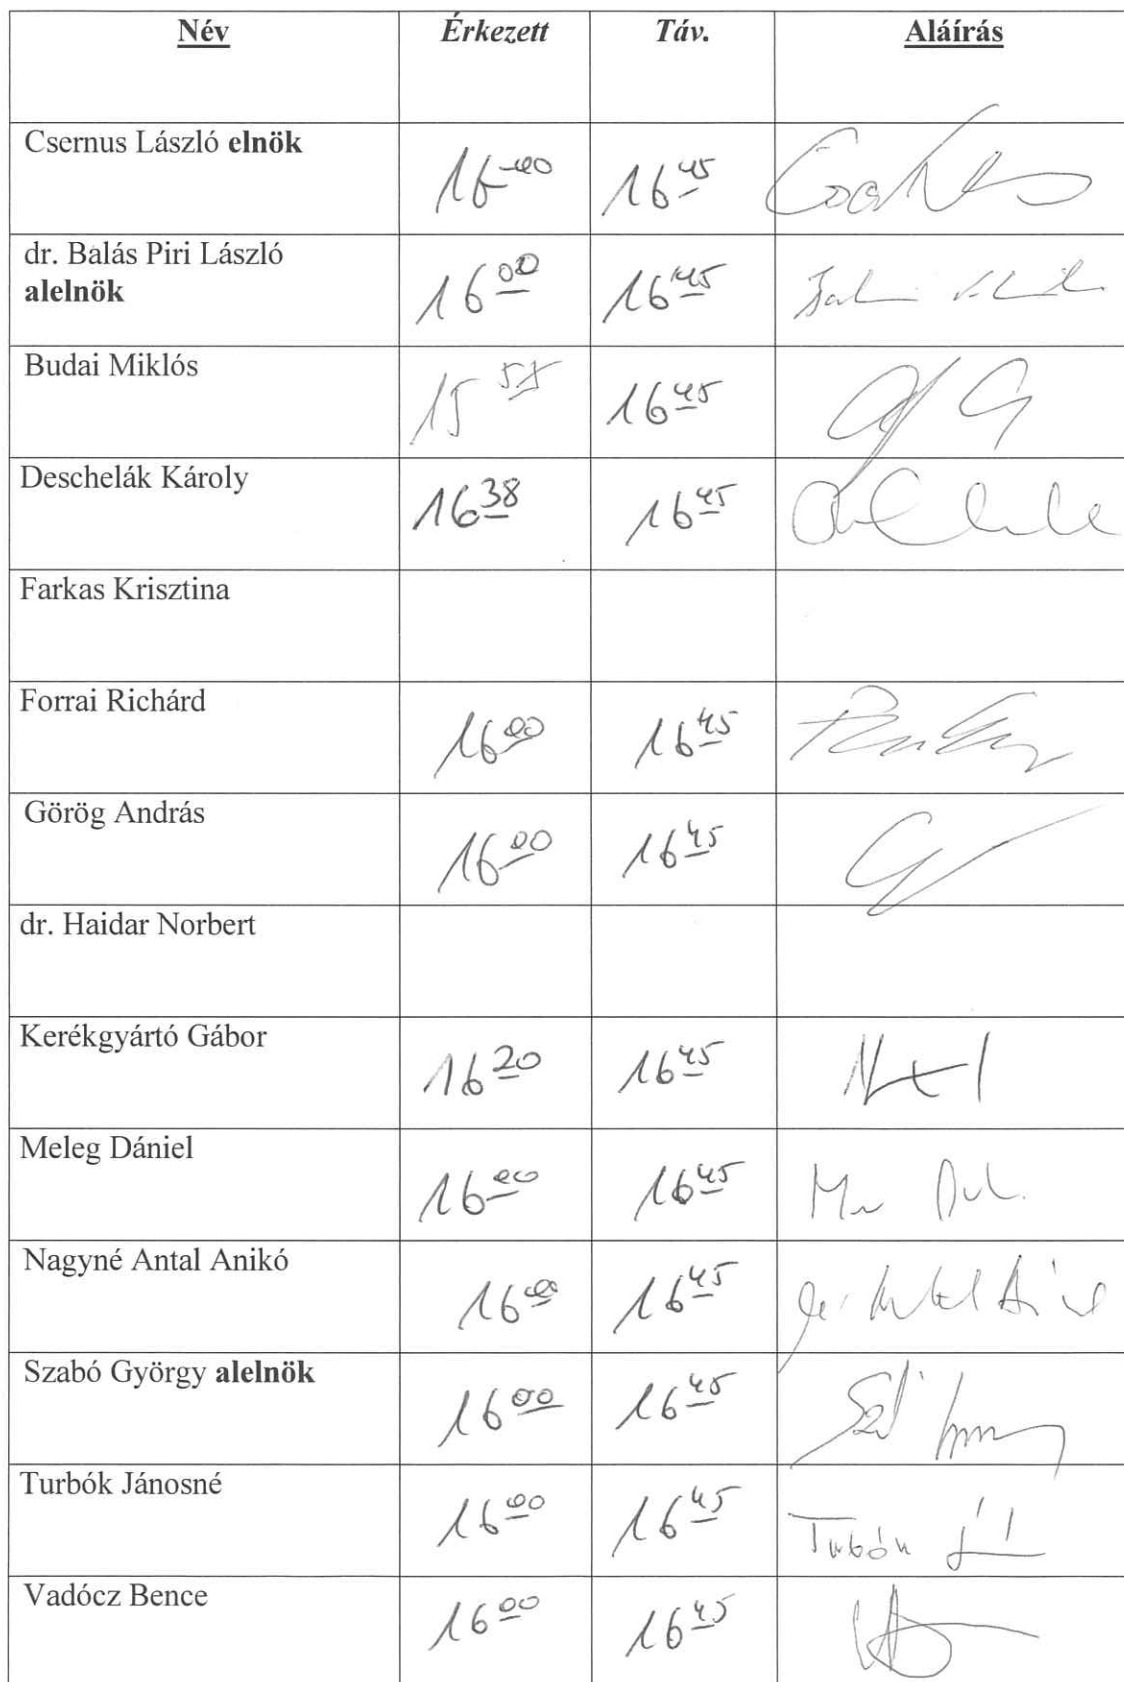 Név Érkezett Táv. Aláírás
Csernus László elnök 16 00 16 45
dr. Balás Piri László 16 00 16 45
alelnök
Budai Miklós 15 57 16 45
Deschelák Károly 16 38 16 45
Farkas Krisztina
Forrai Richárd 16 00 16 45
Görög András 16 00 16 45
dr. Haidar Norbert
Kerékgyártó Gábor 16 20 16 45
Meleg Dániel 16 00 16 45
Nagyné Antal Anikó 16 00 16 45
Szabó György alelnök 16 00 16 45
Turbók Jánosné 16 00 16 45
Vadócz Bence 16 00 16 45